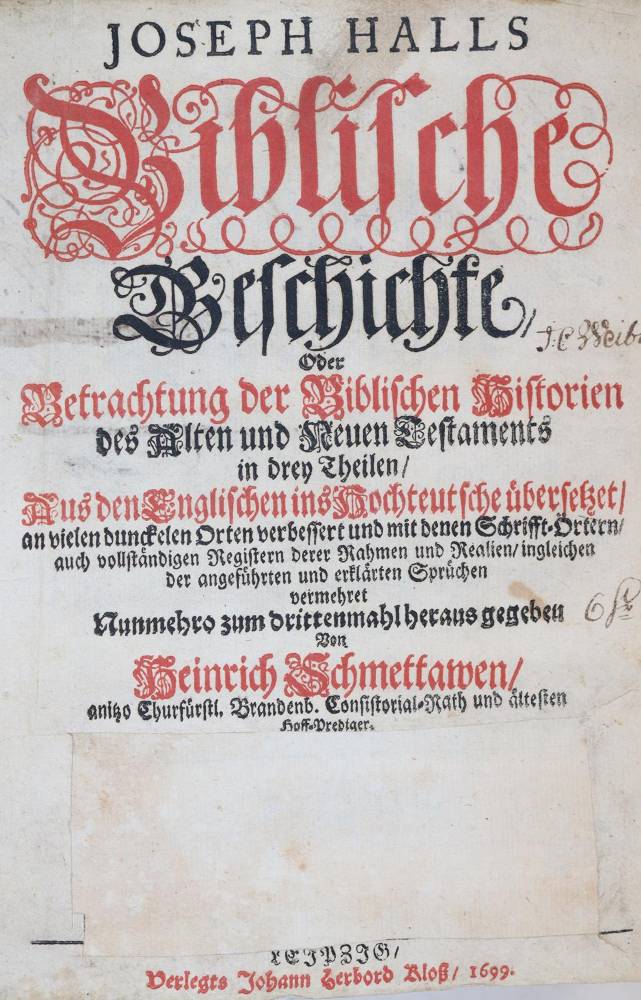 JOSEPH HALLS
Biblische
Geschichte/
Oder
Betrachtung der Biblischen Historien
des Alten und Neuen Testaments
in drey Theilen/
Aus den Englischen ins Hochteutsche übersetzet/
an vielen dunckelen Orten verbessert und mit denen Schrifft-Örtern/
auch vollständigen Registern derer Nahmen und Realien/ ingleichen
der angeführten und erklärten Sprüchen
vermehret
Nunmehro zum drittenmahl heraus gegeben
Von
Heinrich Schmettawen/
anitzo Churfürstl. Brandenb. Consistorial-Rath und ältesten
Hoff-Prediger.
LEIPZIG/
Verlegts Johann Herbord Kloß/ 1699.